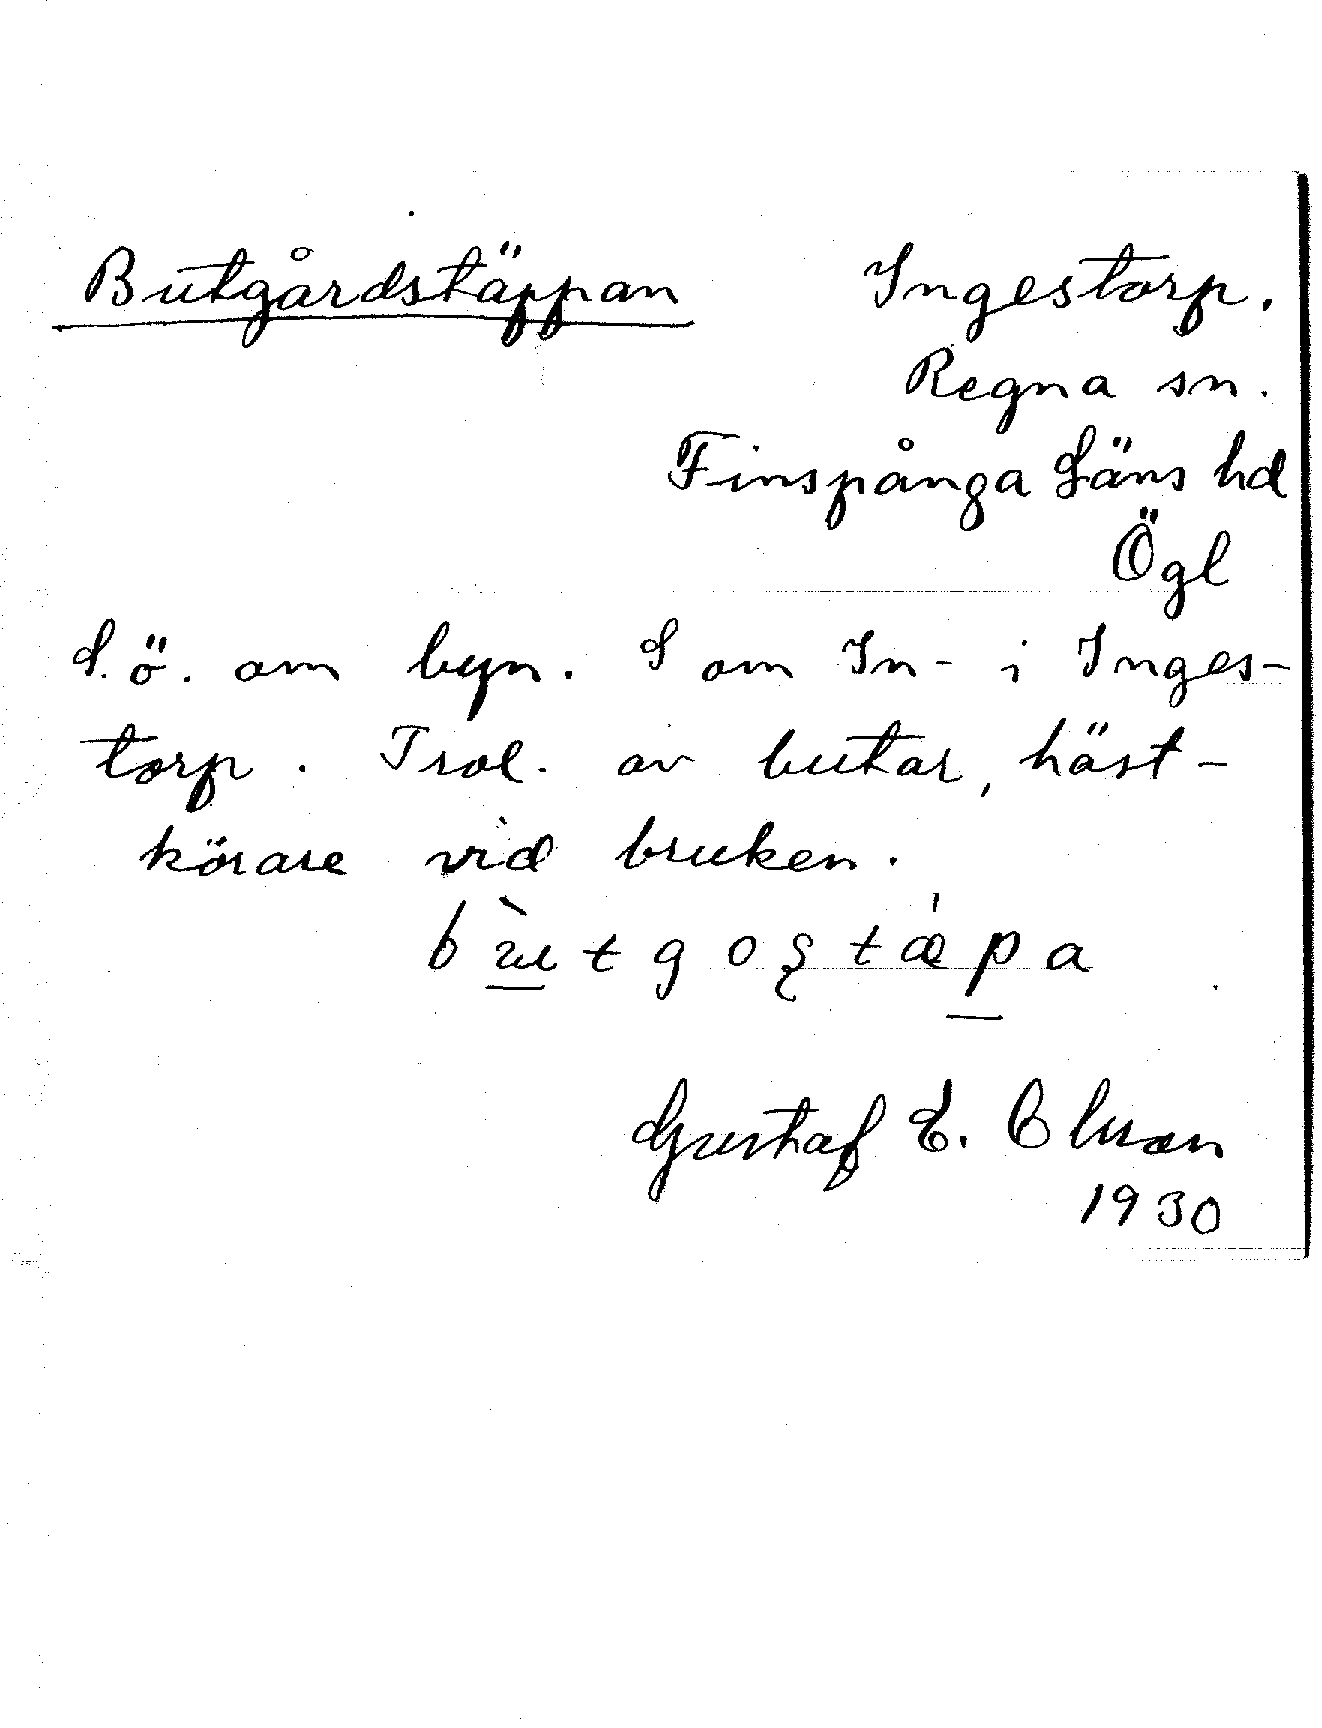 Butgårdstäppan Ingestorp.
Regna sn.
Finspånga Läns hd
Ögl
S.ö. om byn. S om In- i Inges-
torp. Trol. av butar, häst-
körare vid bruken.
Gustaf E.
1930